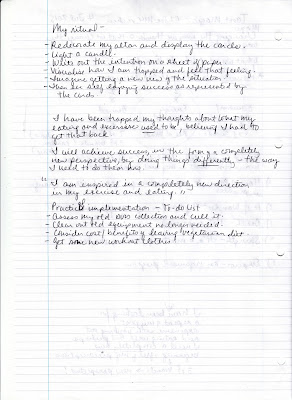 My ritual -
- Redecorate my altar and display the cards.
- Light a candle.
- Write out the intention on a sheet of paper.
- Visualise how I am trapped and feel that feeling.
- Imagine getting a new view of the situation
- Then see self enjoying success as represented by
the cards.
I have been trapped my thoughts about what my
eating and excercise used to be, believing I had to
get that back.
I will achieve success, in the form of a completely
new perspective, by doing things differently - the way
I used to do them was.
"I am inspired in a completely new direction
in my exercise and eating."
Practical implementation - To-do list
- Assess my old DVD collection and cull it.
- Clear out old equipment no longer needed.
- Consider cost/benefits of leaving vegetarian diet.
- Get some new workout clothes